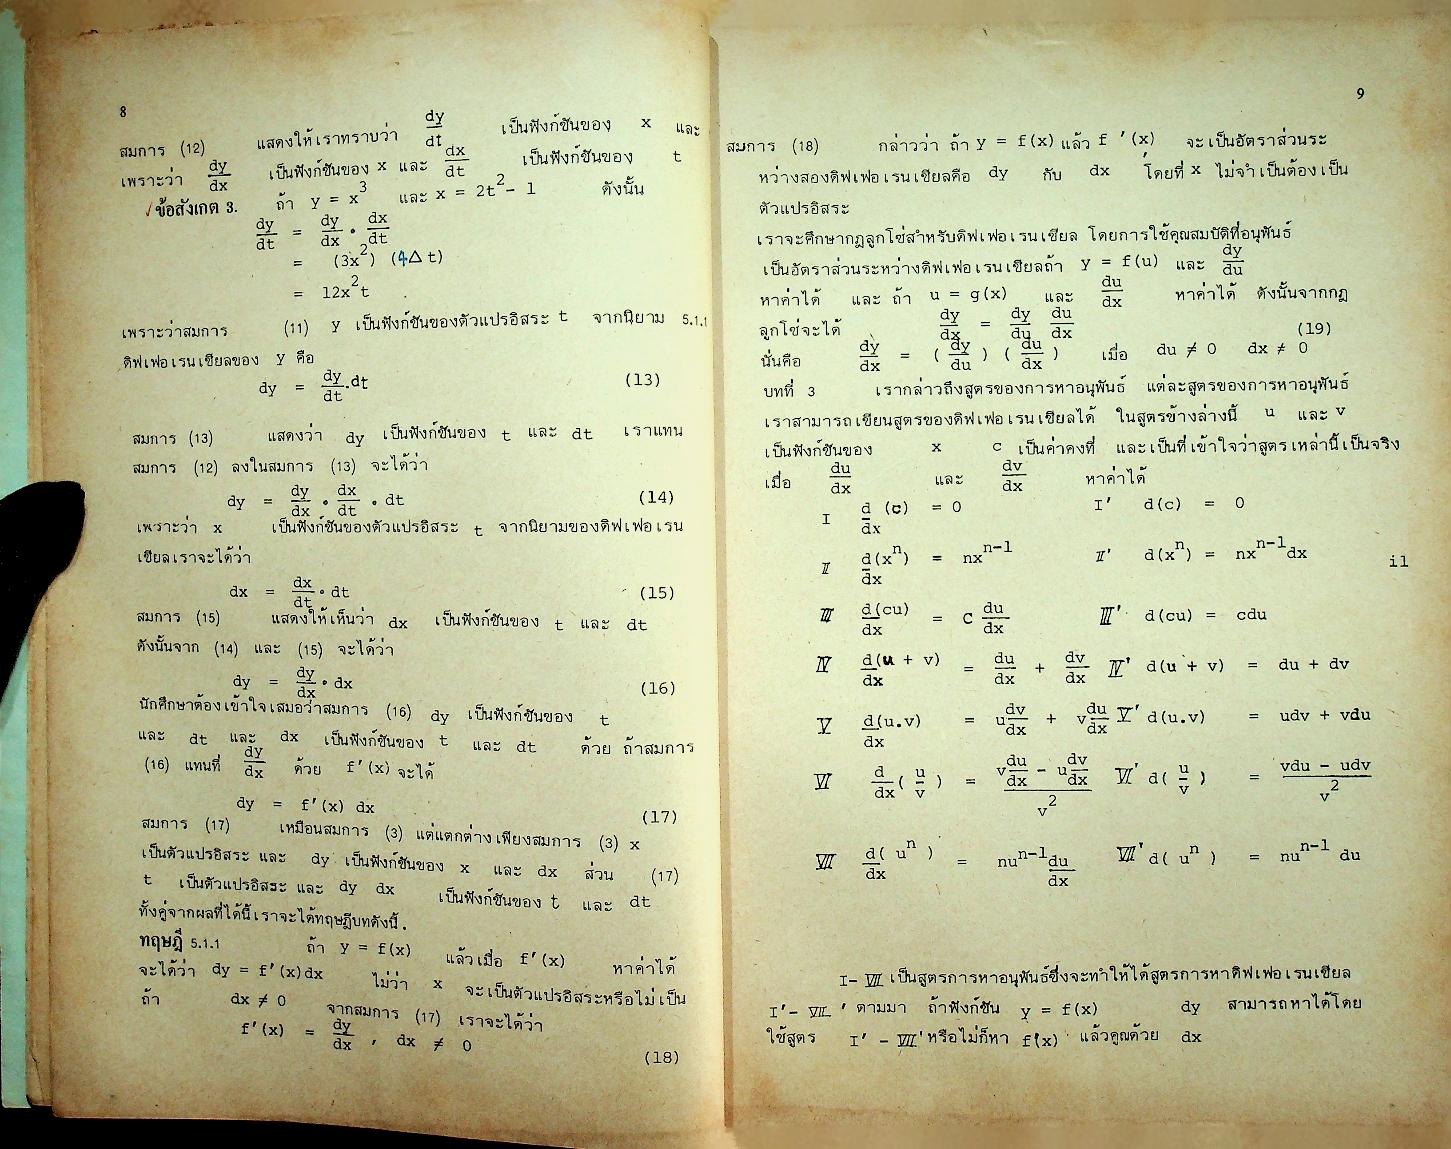 8
สมการ (12) แสดงให้เราทราบว่า dy/dt เป็นฟังก์ชันของ x และ
เพราะว่า dy/dx เป็นฟังก์ชันของ x และ dx/dt เป็นฟังก์ชันของ t
✓ข้อสังเกต 3. ถ้า y = x³ และ x = 2t² - 1 ดังนั้น
dy/dt = dy/dx . dx/dt
= (3x²) (4Δt)
= 12x²t
เพราะว่าสมการ (11) y เป็นฟังก์ชันของตัวแปรอิสระ t จากนิยาม 5.1.1
ดิฟเฟอเรนเชียลของ y คือ
dy = dy/dt.dt (13)
สมการ (13) แสดงว่า dy เป็นฟังก์ชันของ t และ dt เราแทน
สมการ (12) ลงในสมการ (13) จะได้ว่า
dy = dy/dx . dx/dt . dt (14)
เพราะว่า x เป็นฟังก์ชันของตัวแปรอิสระ t จากนิยามของดิฟเฟอเรน
เชียลเราจะได้ว่า
dx = dx/dt . dt (15)
สมการ (15) แสดงให้เห็นว่า dx เป็นฟังก์ชันของ t และ dt
ดังนั้นจาก (14) และ (15) จะได้ว่า
dy = dy/dx . dx (16)
นักศึกษาต้องเข้าใจเสมอว่าสมการ (16) dy เป็นฟังก์ชันของ t
และ dt และ dx เป็นฟังก์ชันของ t และ dt ด้วย ถ้าสมการ
(16) แทนที่ dy/dx ด้วย f'(x) จะได้
dy = f'(x) dx (17)
สมการ (17) เหมือนสมการ (3) แต่แตกต่างเพียงสมการ (3) x
เป็นตัวแปรอิสระ และ dy เป็นฟังก์ชันของ x และ dx ส่วน (17)
t เป็นตัวแปรอิสระ และ dy dx เป็นฟังก์ชันของ t และ dt
ทั้งคู่จากผลที่ได้นี้เราจะได้ทฤษฎีบทดังนี้.
ทฤษฎี 5.1.1 ถ้า y = f(x) แล้วเมื่อ f'(x) หาค่าได้
จะได้ว่า dy = f'(x)dx ไม่ว่า x จะเป็นตัวแปรอิสระหรือไม่เป็น
ถ้า dx ≠ 0 จากสมการ (17) เราจะได้ว่า
f'(x) = dy/dx , dx ≠ 0
(18)
9
สมการ (18) กล่าวว่า ถ้า y = f(x) แล้ว f '(x) จะเป็นอัตราส่วนระ
หว่างสองดิฟเฟอเรนเชียลคือ dy กับ dx โดยที่ x ไม่จำเป็นต้องเป็น
ตัวแปรอิสระ
เราจะศึกษากฎลูกโซ่สำหรับดิฟเฟอเรนเชียล โดยการใช้คุณสมบัติที่อนุพันธ์
เป็นอัตราส่วนระหว่างดิฟเฟอเรนเชียลถ้า y = f(u) และ dy/du
หาค่าได้ และ ถ้า u = g(x) และ du/dx หาค่าได้ ดังนั้นจากกฎ
ลูกโซ่จะได้ dy/dx = dy/du du/dx (19)
นั่นคือ dy/dx = (dy/du) (du/dx) เมื่อ du ≠ 0 dx ≠ 0
บทที่ 3 เรากล่าวถึงสูตรของการหาอนุพันธ์ แต่ละสูตรของการหาอนุพันธ์
เราสามารถเขียนสูตรของดิฟเฟอเรนเชียลได้ ในสูตรข้างล่างนี้ u และ v
เป็นฟังก์ชันของ x c เป็นค่าคงที่ และเป็นที่เข้าใจว่าสูตรเหล่านี้เป็นจริง
เมื่อ du/dx และ dv/dx หาค่าได้
I d/dx (c) = 0 I' d(c) = 0
II d/dx(xⁿ) = nxⁿ⁻¹ II' d(xⁿ) = nxⁿ⁻¹dx il
III d/dx(cu) = C du/dx III' d(cu) = cdu
IV d/dx(u + v) = du/dx + dv/dx IV' d(u + v) = du + dv
V d/dx(u.v) = u dv/dx + v du/dx V' d(u.v) = udv + vdu
VI d/dx (u/v) = (v du/dx - u dv/dx)/v² VI' d(u/v) = (vdu - udv)/v²
VII d/dx( uⁿ ) = nuⁿ⁻¹ du/dx VII' d( uⁿ ) = nuⁿ⁻¹ du
I- VII เป็นสูตรการหาอนุพันธ์ซึ่งจะทำให้ได้สูตรการหาดิฟเฟอเรนเชียล
I'- VII ' ตามมา ถ้าฟังก์ชัน y = f(x) dy สามารถหาได้โดย
ใช้สูตร I' - VII' หรือไม่ก็หา f'(x) แล้วคูณด้วย dx